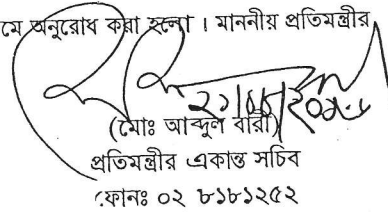 মে অনুরোধ করা হলো । মাননীয় প্রতিমন্ত্রীর
(মোঃ আব্দুল বারী)
প্রতিমন্ত্রীর একান্ত সচিব
ফোনঃ ০২ ৮১৮১২৫২